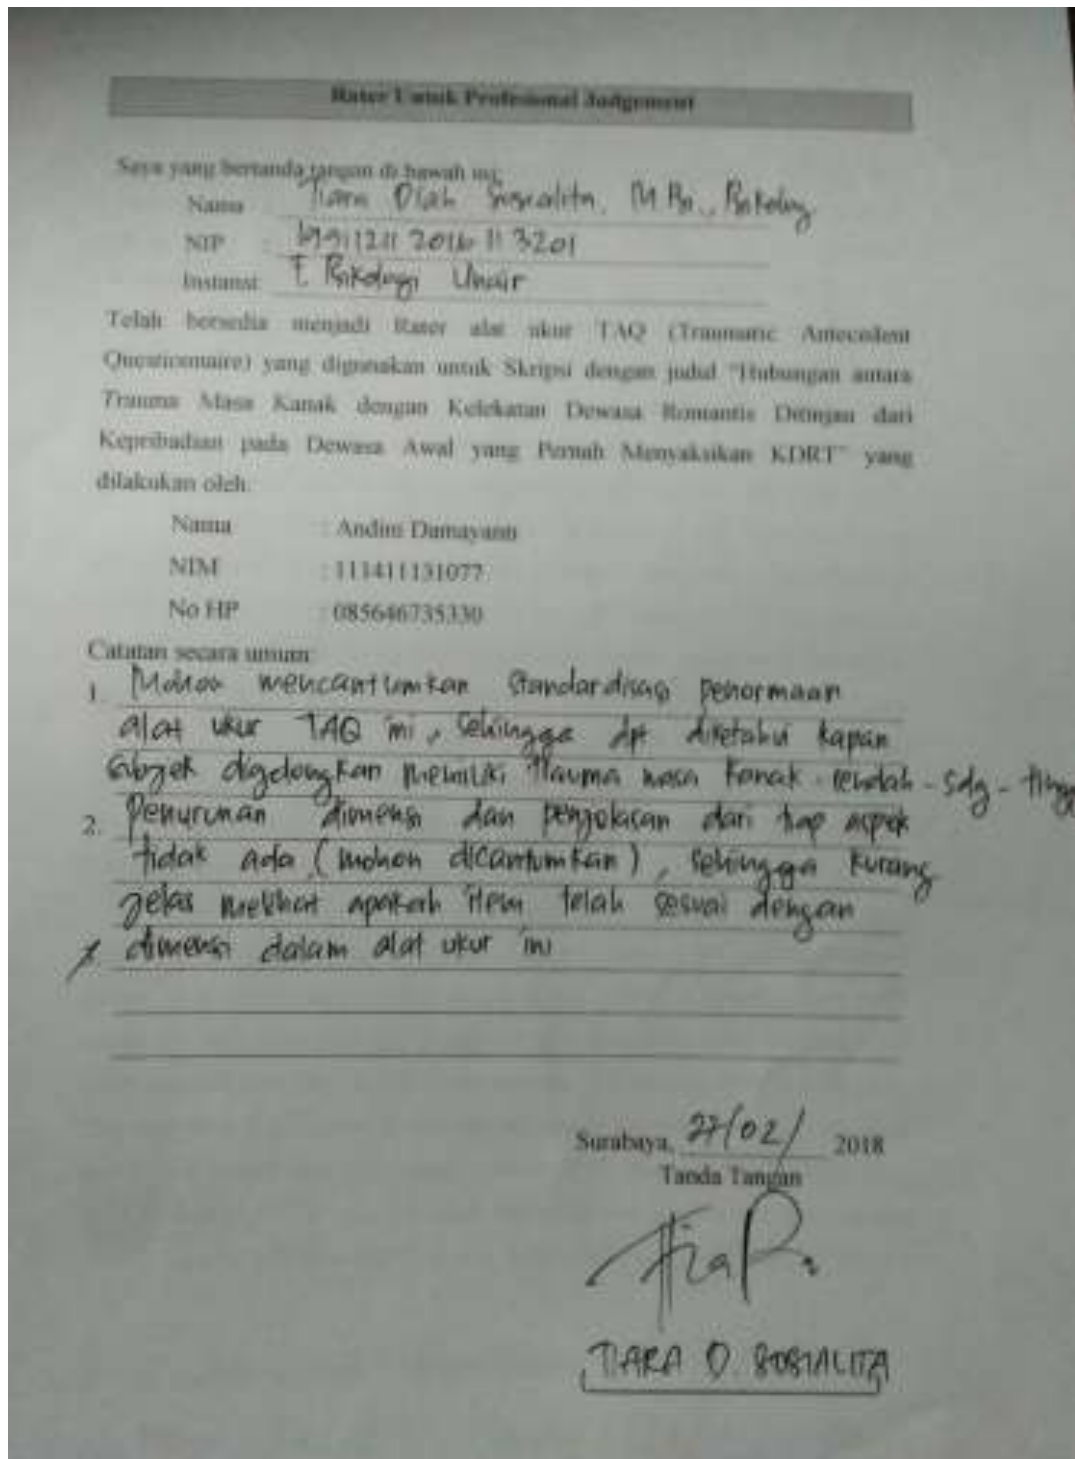 Rater Untuk Profesional Judgement
Saya yang bertanda tangan di bawah ini:
Nama Tiara Diah Sosialita, M.Psi., Psikolog
NIP :
Instansi: F. Psikologi Unair
Telah bersedia menjadi Rater alat ukur TAQ (Traumatic Antecedent
Questionnaire) yang digunakan untuk Skripsi dengan judul "Hubungan antara
Trauma Masa Kanak dengan Kelekatan Dewasa Romantis Ditinjau dari
Kepribadian pada Dewasa Awal yang Pernah Menyaksikan KDRT" yang
dilakukan oleh:
Nama : Andini Damayanti
NIM : 111411131077
No HP : 085646735330
Catatan secara umum:
1. Mohon mencantumkan standardisasi penormaan
alat ukur TAQ ini, sehingga dpt diketahui kapan
subjek digolongkan memiliki trauma masa kanak rendah - sdg - tinggi
2. Penurunan dimensi dan penjelasan dari tiap aspek
tidak ada (mohon dicantumkan), sehingga kurang
jelas melihat apakah item telah sesuai dengan
dimensi dalam alat ukur ini
Surabaya, 27/02/ 2018
Tanda Tangan
TIARA D. SOSIALITA